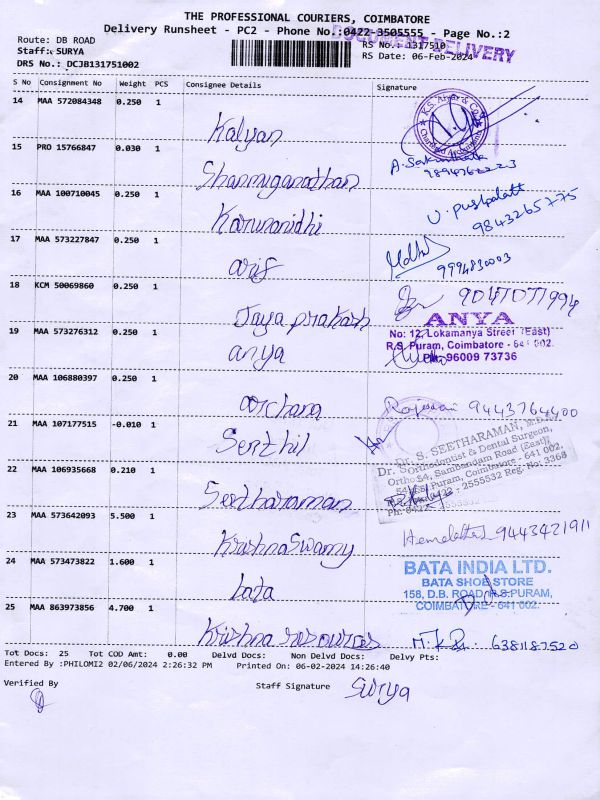 THE PROFESSIONAL COURIERS, COIMBATORE
Delivery Runsheet - PC2 - Phone No.:0422-3505555 - Page No.:2
DOCUMENT DELIVERY
Route: DB ROAD
RS No.: 1317510
Staff: SURYA
RS Date: 06-Feb-2024
DRS No.: DCJB131751002
S No Consignment No Weight PCS Consignee Details Signature
14 MAA 572084348 0.250 1 Kalyan
15 PRO 15766847 0.030 1 Shanmuganathan
16 MAA 100710045 0.250 1 Karunanidhi U. Pushpalatt 9843265775
17 MAA 573227847 0.250 1 arif 9994830003
18 KCM 50069860 0.250 1 Jaya prakash
19 MAA 573276312 0.250 1 anya
ANYA
No: 12, Lokamanya Street (East)
R.S. Puram, Coimbatore - 641 002.
Ph: 96009 73736
20 MAA 106880397 0.250 1 archana 9443764400
21 MAA 107177515 -0.010 1 Senthil
Dr. S. SEETHARAMAN, M.D.S.
Orthodontist & Dental Surgeon,
54, Sambandam Road (East),
R.S. Puram, Coimbatore - 641 002.
Ph: 0422 - 2555532 Reg. No: 3368
22 MAA 106935668 0.210 1 Seetharaman
23 MAA 573642093 5.500 1 Krishna Swamy Hemalatha 9443421911
24 MAA 573473822 1.600 1 bata
BATA INDIA LTD.
BATA SHOE STORE
158, D.B. ROAD, R.S.PURAM,
COIMBATORE - 641 002.
25 MAA 863973856 4.700 1 Krishna resources 6381187520
Tot Docs: 25 Tot COD Amt: 0.00 Delvd Docs: Non Delvd Docs: Delvy Pts:
Entered By :PHILOMI2 02/06/2024 2:26:32 PM Printed On: 06-02-2024 14:26:40
Verified By Staff Signature Surya